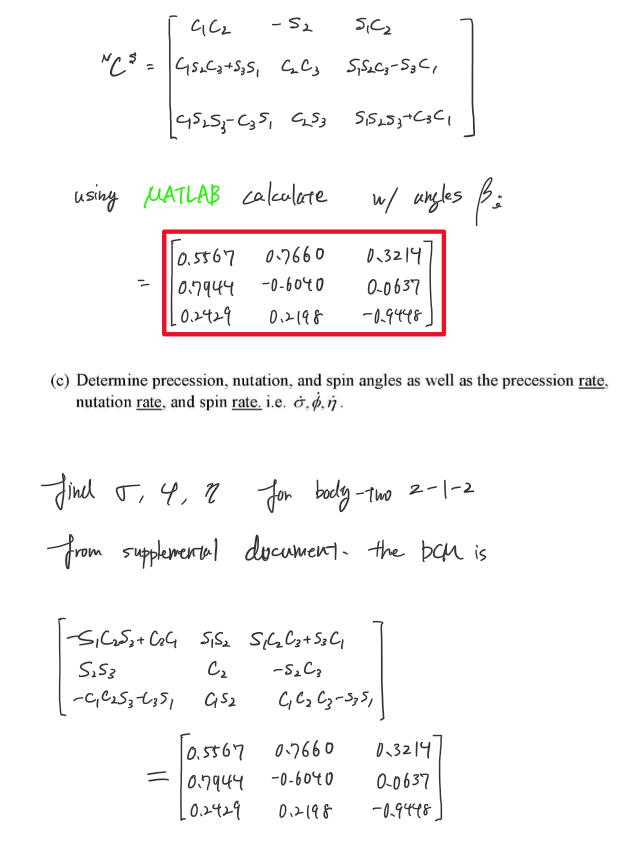 ᴺCˢ = [ C₁C₂ -S₂ S₁C₂
C₁S₂C₃+S₃S₁ C₂C₃ S₁S₂C₃-S₃C₁
C₁S₂S₃-C₃S₁ C₂S₃ S₁S₂S₃+C₃C₁ ]
using MATLAB calculate w/ angles βᵢ
= [ 0.5567 0.7660 0.3214
0.7944 -0.6040 0.0637
0.2429 0.2198 -0.9448 ]
(c) Determine precession, nutation, and spin angles as well as the precession rate,
nutation rate, and spin rate. i.e. σ̇, ϕ̇, η̇.
find σ, φ, η for body-two 2-1-2
from supplemental document. the DCM is
[ -S₁C₂S₃+C₃C₁ S₁S₂ S₁C₂C₃+S₃C₁
S₂S₃ C₂ -S₂C₃
-C₁C₂S₃-C₃S₁ C₁S₂ C₁C₂C₃-S₃S₁ ]
= [ 0.5567 0.7660 0.3214
0.7944 -0.6040 0.0637
0.2429 0.2198 -0.9448 ]